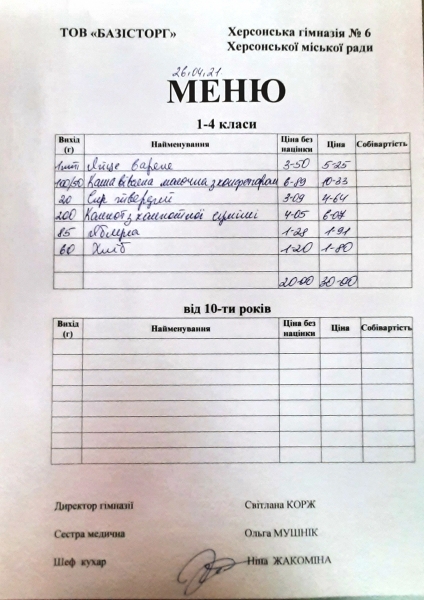 ТОВ «БАЗІСТОРГ» Херсонська гімназія № 6
Херсонської міської ради
26.04.21
МЕНЮ
1-4 класи
Вихід (г) Найменування Ціна без націнки Ціна Собівартість
1 шт Яйце варене 3-50 5-25
100/50 Каша вівсяна молочна з конфетюром 6-89 10-33
20 Сир твердий 3-09 4-64
200 Компот з компотної суміші 4-05 6-07
85 Яблука 1-28 1-91
60 Хліб 1-20 1-80
20-00 30-00
від 10-ти років
Вихід (г) Найменування Ціна без націнки Ціна Собівартість
Директор гімназії Світлана КОРЖ
Сестра медична Ольга МУШНІК
Шеф кухар Ніна ЖАКОМІНА